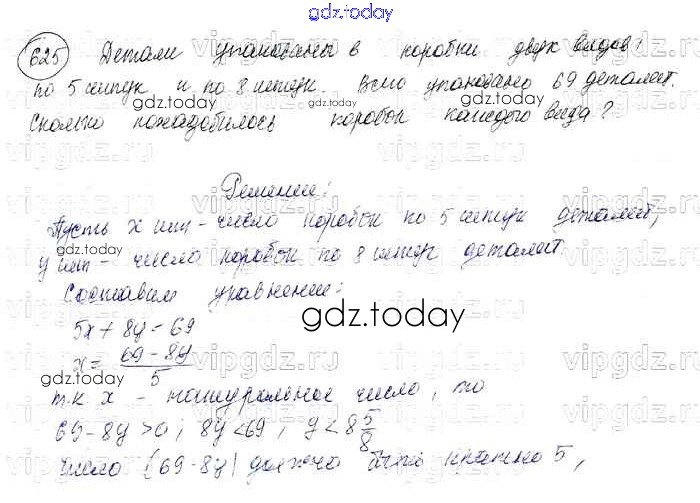 gdz.today
625 Детали упакованы в коробки двух видов:
по 5 штук и по 8 штук. Всего упаковано 69 деталей.
gdz.today
gdz.today
Сколько понадобилось коробок каждого вида?
Решение:
Пусть x шт - число коробок по 5 штук деталей,
y шт - число коробок по 8 штук деталей.
gdz.today
Составим уравнение:
gdz.today
5x + 8y = 69
x = (69 - 8y)/5
gdz.today
т.к x - натуральное число, то
69 - 8y > 0; 8y < 69, y < 8 5/8
число (69 - 8y) должно быть кратно 5,